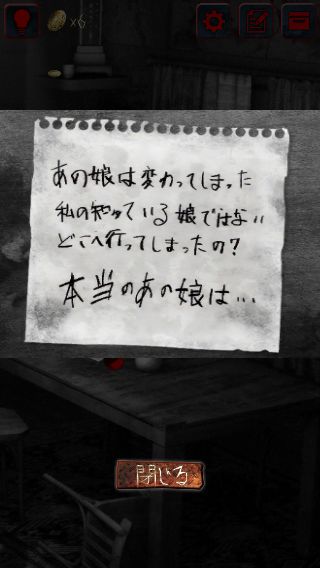 ×6
あの娘は変わってしまった
私の知っている娘ではない
どこへ行ってしまったの?
本当のあの娘は…
閉じる